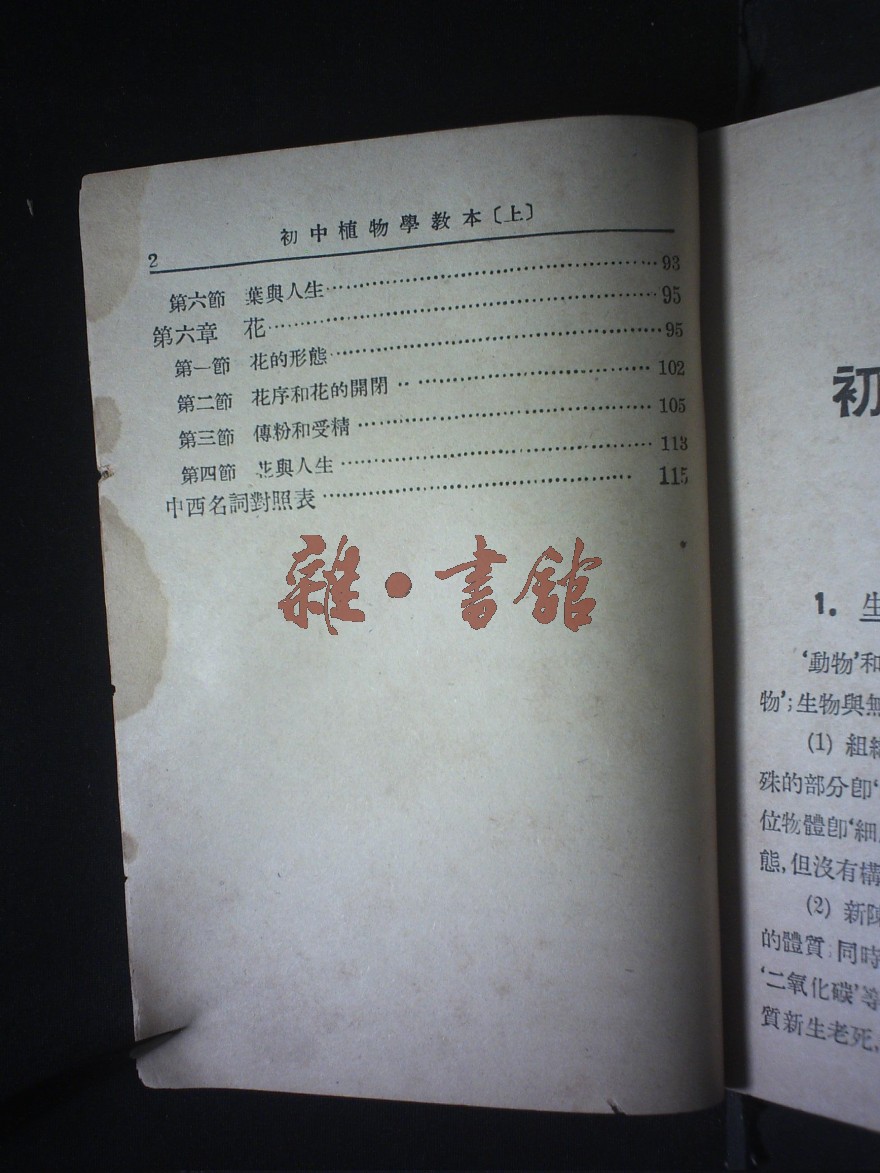 2
初中植物學教本〔上〕
第六節 葉與人生 93
第六章 花 95
第一節 花的形態 95
第二節 花序和花的開閉 102
第三節 傳粉和受精 105
第四節 花與人生 113
中西名詞對照表 115
雜·書館
初
1. 生
‘動物’和
物’;生物與無
(1) 組織
殊的部分卽‘
位物體卽‘細
態,但沒有構
(2) 新陳
的體質;同時
‘二氧化碳’等
質新生老死,